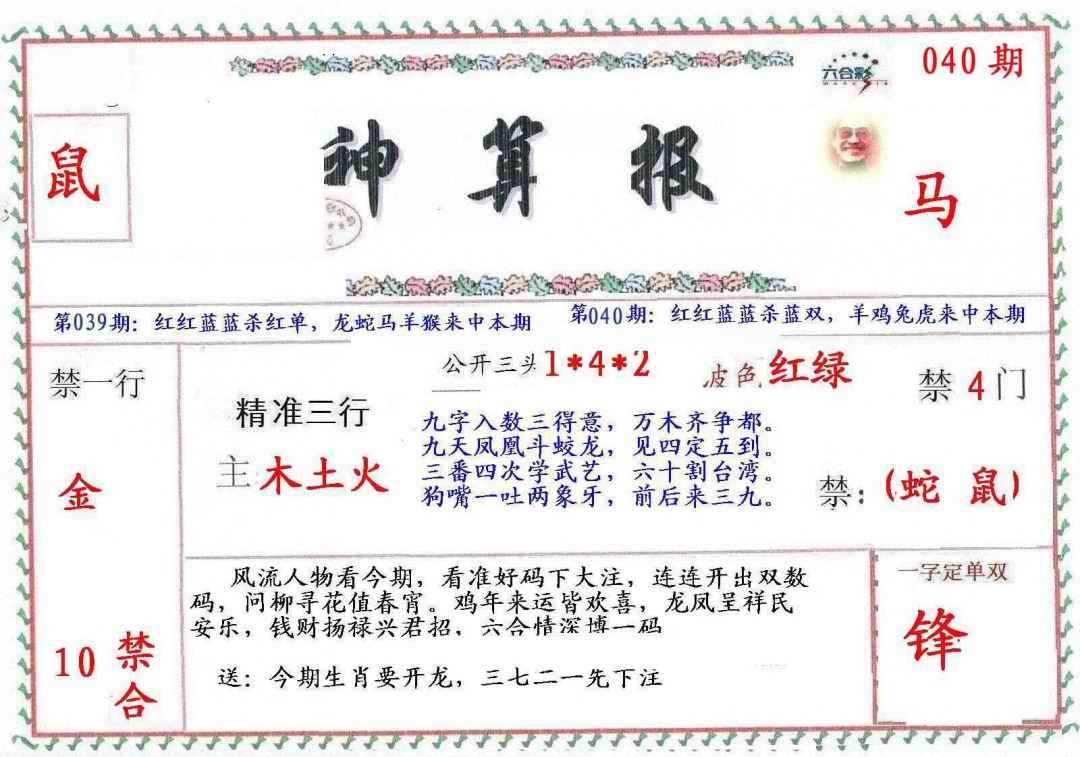 六合彩
040期
鼠
神算报
马
第039期：红红蓝蓝杀红单，龙蛇马羊猴来中本期
第040期：红红蓝蓝杀蓝双，羊鸡兔虎来中本期
禁一行
金
10禁合
精准三行
主木土火
公开三头1*4*2
波色 红绿
九字入数三得意，万木齐争都。
九天凤凰斗蛟龙，见四定五到。
三番四次学武艺，六十割台湾。
狗嘴一吐两象牙，前后来三九。
禁4门
禁：(蛇 鼠)
风流人物看今期，看准好码下大注，连连开出双数
码，问柳寻花值春宵。鸡年来运皆欢喜，龙凤呈祥民
安乐，钱财扬禄兴君招，六合情深博一码
送：今期生肖要开龙，三七二一先下注
一字定单双
锋